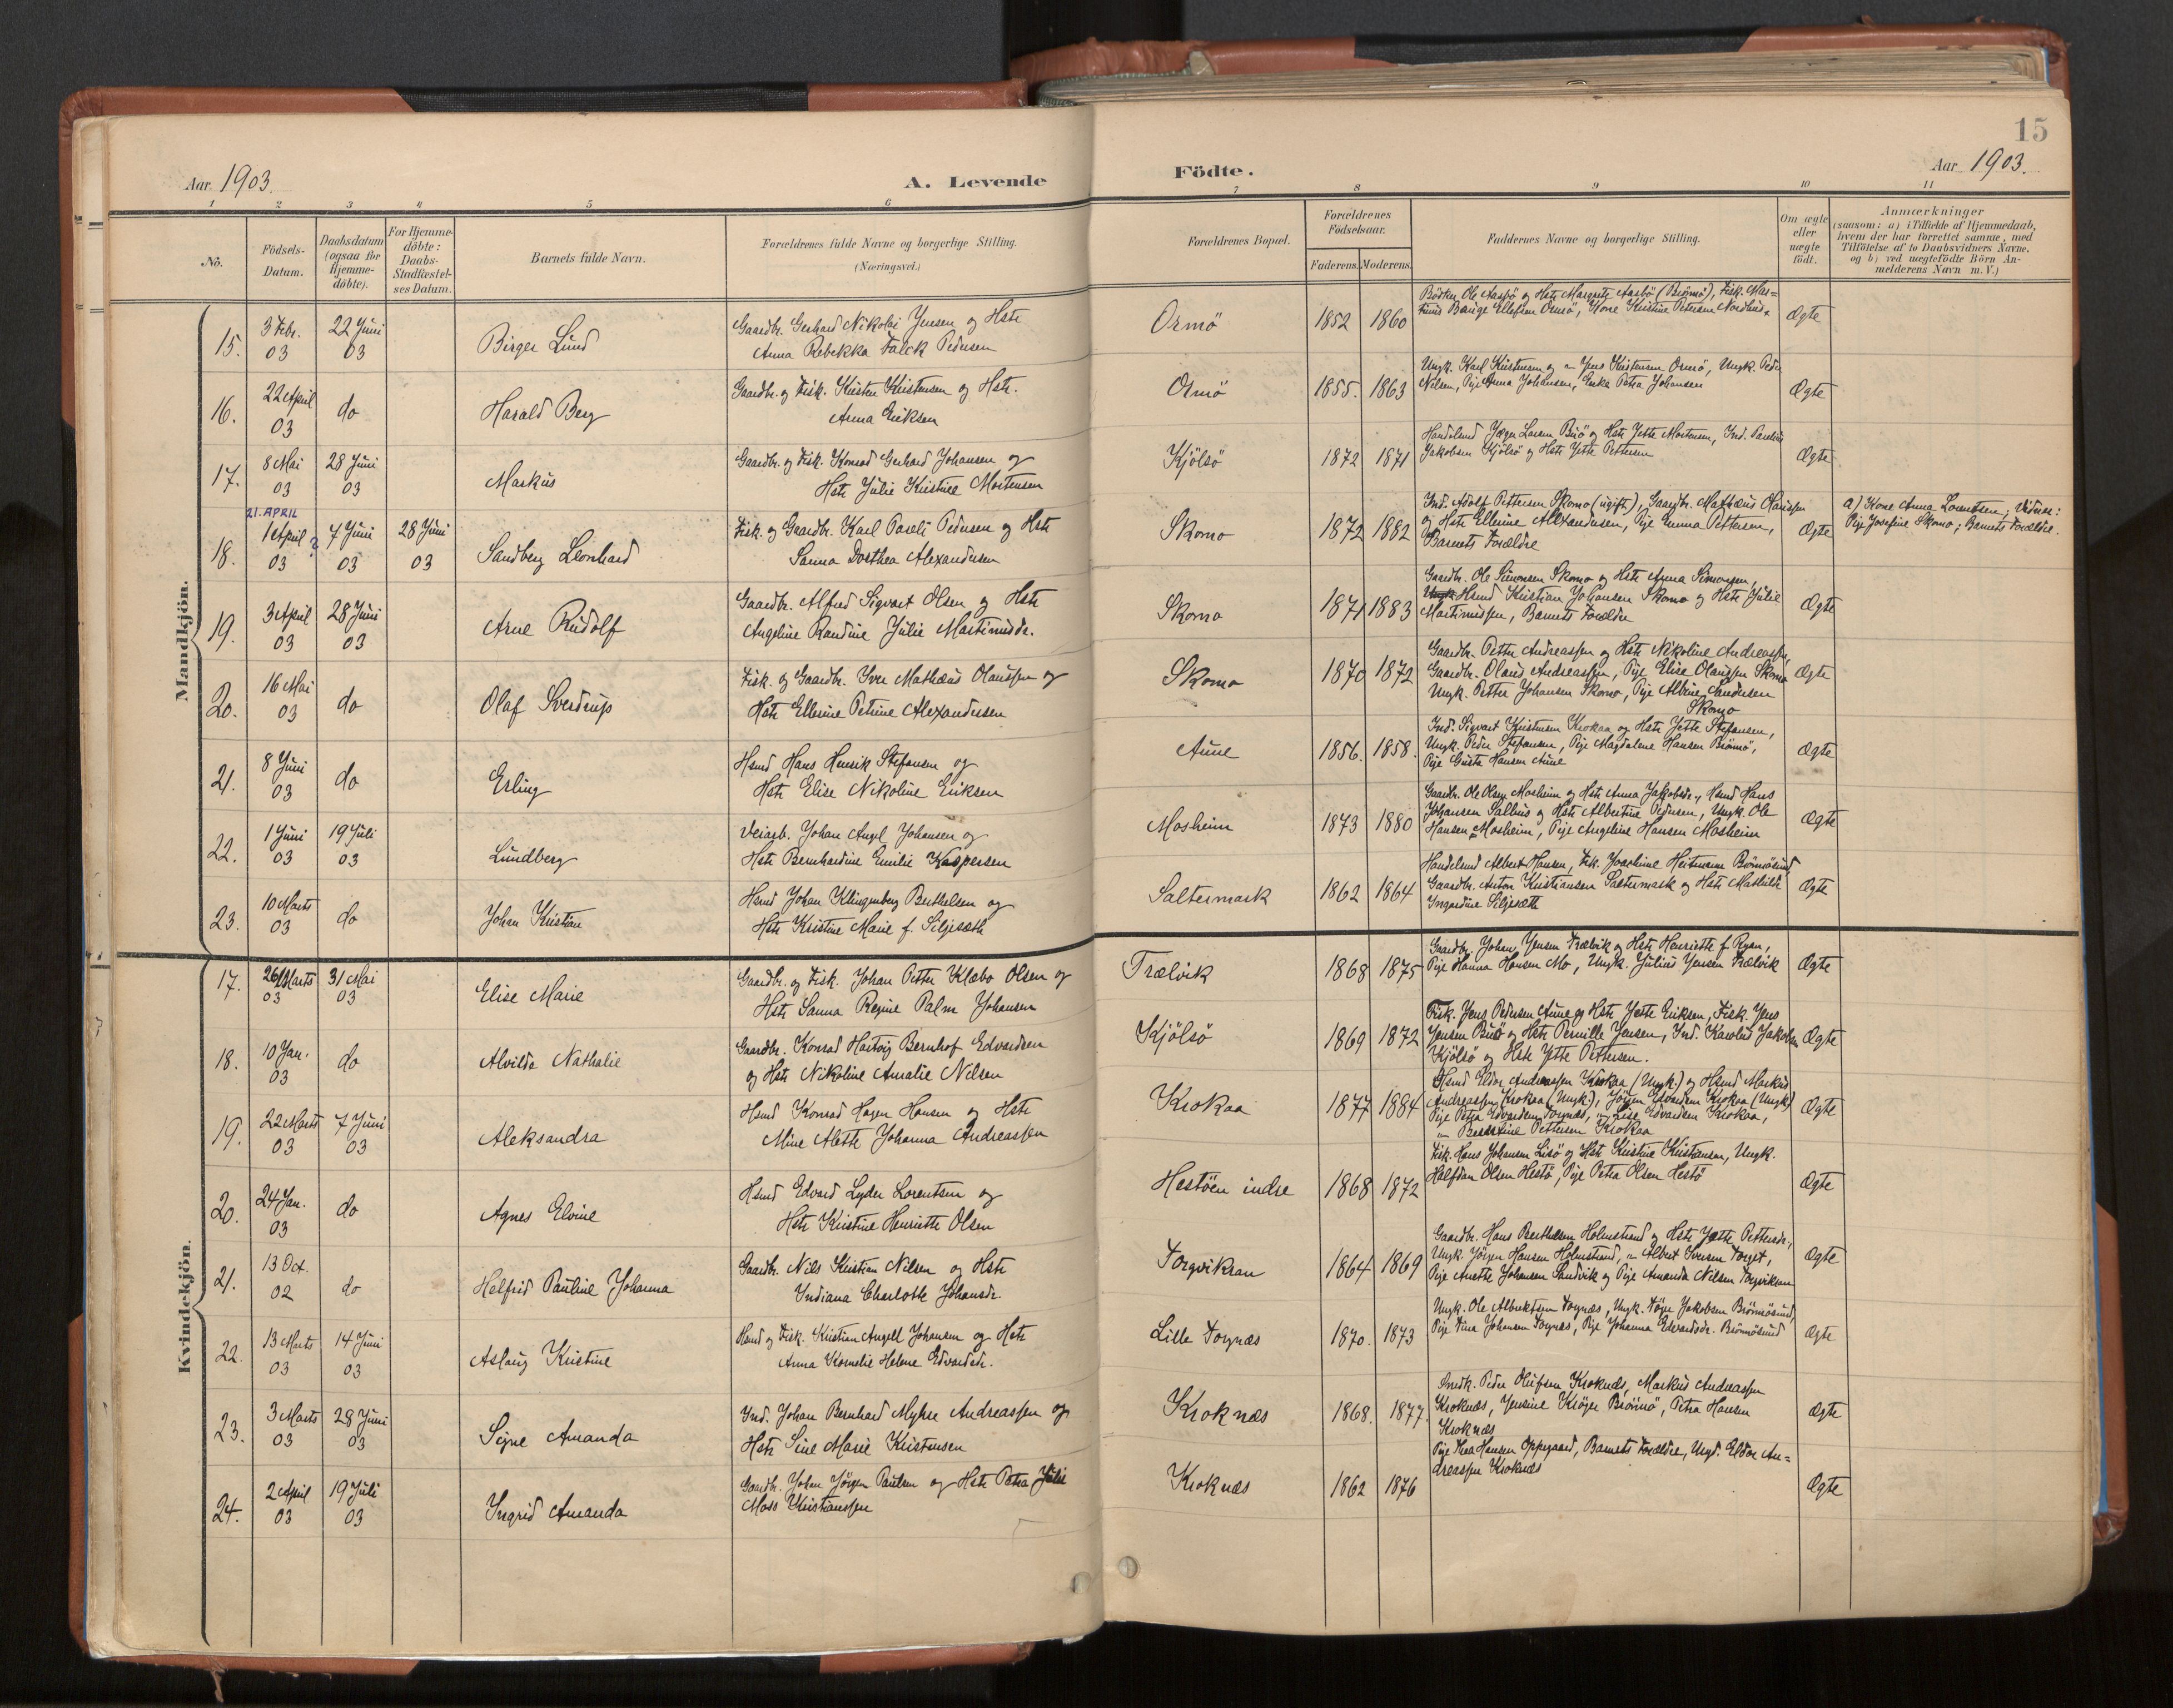 15
Aar 1903.
A. Levende
Födte.
Aar 1903.
1 2 3 4 5 6 7 8 9 10 11
No.
Födsels-Datum.
Daabsdatum (ogsaa for Hjemme-döbte).
For Hjemme-döbte: Daabs-Stadfæstel-ses Datum.
Barnets fulde Navn.
Forældrenes fulde Navne og borgerlige Stilling.
(Næringsvei.)
Forældrenes Bopæl.
Forældrenes Födselsaar.
Faderens. Moderens.
Faddernes Navne og borgerlige Stilling.
Om ægte eller uægte födt.
Anmærkninger
(saasom: a) i Tilfælde af Hjemmedaab, hvem der har forrettet samme, med Tilföielse af to Daabsvidners Navne, og b) ved uægtefödte Börn Anmelderens Navn m. V.)
Mandkjön.
15. 3 Febr. 03 22 Juni 03 Birger Lund
Gaardbr. Gerhard Nikolai Jensen og Hstr
Anna Rebekka Falck Pedersen
Ormö 1852 1860
Bödker Ole Aasbö og Hstr Margrete Aasbö (Brönnö), Fisk. Mar=
tinus Bange Ellefsen Ormö, Kone Kristine Petersen Nordhus.
Ægte
16. 22 April 03 do Harald Berg
Gaardbr. og Fisk. Kristen Kristensen og Hstr.
Anna Eriksen
Ormö 1855. 1863
Ungk. Karl Kristensen og " Jens Kristensen Ormö, Ungk. Peder
Nilsen, Pige Anna Johansen, Enke Petra Johansen
Ægte
17. 8 Mai 03 28 Juni 03 Markus
Gaardbr. og Fisk. Konrad Gerhard Johansen og
Hstr Julie Kristine Mortensen
Kjölsö 1872 1871
Handelsmd Jörgen Larsen Buö og Hstr Jette Mortensen, Ind. Paulus
Jakobsen Kjölsö og Hstr Jette Pettersen
Ægte
21. APRIL
18. 1 April ? 03 7 Juni 03 28 Juni 03 Sandberg Leonhard
Fisk. og Gaardbr. Karl Pareli Pedersen og Hstr
Sanna Dorthea Alexandersen
Skomo 1872 1882
Ind. Adolf Pettersen Skomo (ugift), Gaardbr. Mathæus Olaussen
og Hstr Ellerine Alexandersen, Pige Emma Pettersen,
Barnets Forældre
Ægte
a) Kone Anna Lorentsen; Vidner:
Pige Josefine Skomo; Barnets Forældre.
19. 3 April 03 28 Juni 03 Arne Rudolf
Gaardbr. Alfred Sigvart Olsen og Hstr
Angeline Randine Julie Martinusdr.
Skomo 1871 1883
Gaardbr. Ole Simonsen Skomo og Hstr Anna Simonsen,
Hsmd Kristian Johansen Skomo og Hstr Julie
Martinussen, Barnets Forældre
Ægte
20. 16 Mai 03 do Olaf Sverdrup
Fisk. og Gaardbr. Iver Mathæus Olaussen og
Hstr Ellerine Petrine Alexandersen
Skomo 1870 1872
Gaardbr. Petter Andreassen og Hstr Nikoline Andreassen,
Gaardbr. Olaus Andreassen, Pige Elise Olaussen Skomo
Ungk. Petter Johansen Skomo, Pige Albine Sandersen
Skomo
Ægte
21. 8 Juni 03 do Erling
Hsmd Hans Henrik Stefansen og
Hstr Elise Nikoline Eriksen
Aune 1856. 1858.
Ind. Sigvart Kristensen Krokaa og Hstr Jette Stefansen,
Ungk. Peder Stefansen, Pige Magdalene Hansen Brönnö,
Pige Gusta Hansen Aune
Ægte
22. 1 Juni 03 19 Juli 03 Lundberg
Veiarb. Johan Angel Johansen og
Hstr Bernhardine Emilie Kaspersen
Mosheim 1873 1880
Gaardbr. Ole Olsen Mosheim og Hstr Anna Jakobsdr., Hsmd Hans
Johansen Salhus og Hstr Albertine Pedersen, Ungk. Ole
Hansen Mosheim, Pige Angeline Hansen Mosheim
Ægte
23. 10 Marts 03 do Johan Kristian
Hsmd Johan Klingenberg Berthelsen og
Hstr Kristine Marie f. Siljesæth
Saltermark 1862 1864
Handelsmd Albert Hansen, Frk. Joachime Heitmann Brönnösund,
Gaardbr. Anton Kristiansen Saltermark og Hstr Mathilde
Ingardine Siljesæth
Ægte
Kvindekjön.
17. 26 Marts 03 31 Mai 03 Elise Marie
Gaardbr. og Fisk. Johan Petter Klæbo Olsen og
Hstr Sanna Regine Palm Johansen
Trælvik 1868 1875
Gaardbr. Johan Jensen Trælvik og Hstr Henriette f. Ryan,
Pige Hanna Hansen Mo, Ungk. Julius Jensen Trælvik
Ægte
18. 10 Jan. 03 do Alvilde Nathalie
Gaardbr. Konrad Hartvig Bernhof Edvardsen
og Hstr Nikoline Amalie Nilsen
Kjölsö 1869 1872
Fisk. Jens Pedersen Aune og Hstr Jette Eriksen, Fisk. Jens
Jensen Buö og Hstr Pernille Jensen, Ind. Karolus Jakobsen
Kjölsö og Hstr Jette Pettersen.
Ægte
19. 22 Marts 03 7 Juni 03 Aleksandra
Hsmd Konrad Hagen Hansen og Hstr
Mine Alette Johanna Andreassen
Krokaa 1877 1884
Hsmd Eldor Andreassen Krokaa (Ungk.) og Hsmd Markus
Andreassen Krokaa (Ungk.), Jörgen Edvardsen Krokaa (Ungk.)
Pige Petra Edvardsen Torgnæs, " Lise Edvardsen Krokaa,
" Berntine Pettersen Krokaa
Ægte
20. 24 Jan. 03 do Agnes Elvine
Hsmd Edvard Lyder Lorentsen og
Hstr Kristine Henriette Olsen
Hestöen indre 1868 1872
Fisk. Hans Johansen Lisö og Hstr Kristine Kristiansen, Ungk.
Halfdan Olsen Hestö, Pige Petra Olsen Hestö
Ægte
21. 13 Oct. 02 do Helfrid Pauline Johanna
Gaardbr. Nils Kristian Nilsen og Hstr
Indiana Charlotte Johansdr.
Torgvikran 1864 1869
Gaardbr. Hans Berthelsen Holmstrand og Hstr Jette Pettersdr.,
Ungk. Jörgen Hansen Holmstrand, " Albert Iversen Torget,
Pige Anette Johansen Sandvik og Pige Amanda Nilsen Torgvikran
Ægte
22. 13 Marts 03 14 Juni 03 Aslaug Kristine
Hsmd og Fisk. Kristian Angell Johansen og Hstr
Anna Kornelie Helene Edvardsdr.
Lille Torgnæs 1870. 1873
Ungk. Ole Albriktsen Torgnæs, Ungk. Töger Jakobsen Brönnösund,
Pige Tina Johansen Torgnæs, Pige Johanna Edvardsdr. Brönnösund
Ægte
23. 3 Marts 03 28 Juni 03 Signe Amanda
Ind. Johan Bernhard Myhre Andreassen og
Hstr Sine Marie Kristensen
Kroknæs 1868. 1877.
Snedk. Peder Olufsen Kroknæs, Markus Andreassen
Kroknæs, Jensine Kröger Brönnö, Petra Hansen
Kroknæs
Ægte
24. 2 April 03 19 Juli 03 Ingrid Amanda
Gaardbr. Johan Jörgen Paulsen og Hstr Petra Julie
Moss Kristianssen
Kroknæs 1862 1876
Pige Thea Hansen Oppegaard, Barnets Forældre, Ungk. Eldor An=
dreassen Kroknæs
Ægte